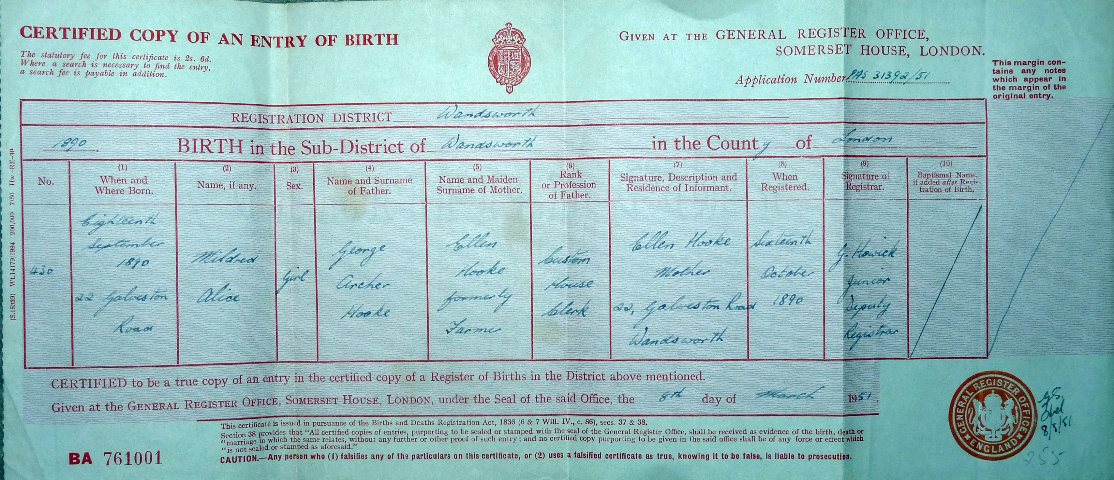 CERTIFIED COPY OF AN ENTRY OF BIRTH
The statutory fee for this certificate is 2s. 6d.
Where a search is necessary to find the entry,
a search fee is payable in addition.
GIVEN AT THE GENERAL REGISTER OFFICE,
SOMERSET HOUSE, LONDON.
Application Number PAS 31392/51
This margin con-
tains any notes
which appear in
the margin of the
original entry.
REGISTRATION DISTRICT Wandsworth
1890. BIRTH in the Sub-District of Wandsworth in the County of London
No.
(1)
When and
Where Born.
(2)
Name, if any.
(3)
Sex.
(4)
Name and Surname
of Father.
(5)
Name and Maiden
Surname of Mother.
(6)
Rank
or Profession
of Father.
(7)
Signature, Description and
Residence of Informant.
(8)
When
Registered.
(9)
Signature of
Registrar.
(10)
Baptismal Name,
if added after Regis-
tration of Birth.
430
Eighteenth
September
1890
22 Galveston
Road
Mildred
Alice
Girl
George
Archer
Hooke
Ellen
Hooke
formerly
Farmer
Custom
House
Clerk
Ellen Hooke
Mother
22, Galveston Road
Wandsworth
Sixteenth
October
1890
G. Howick
Junior
Deputy
Registrar
CERTIFIED to be a true copy of an entry in the certified copy of a Register of Births in the District above mentioned.
Given at the GENERAL REGISTER OFFICE, SOMERSET HOUSE, LONDON, under the Seal of the said Office, the 8th day of March 1951
This certificate is issued in pursuance of the Births and Deaths Registration Act, 1836 (6 & 7 Will. IV., c. 86), secs. 37 & 38.
Section 38 provides that "All certified copies of entries, purporting to be sealed or stamped with the seal of the General Register Office, shall be received as evidence of the birth, death or
"marriage to which the same relates, without any further or other proof of such entry; and no certified copy purporting to be given in the said office shall be of any force or effect which
"is not sealed or stamped as aforesaid."
CAUTION.—Any person who (1) falsifies any of the particulars on this certificate, or (2) uses a falsified certificate as true, knowing it to be false, is liable to prosecution.
BA 761001
GENERAL REGISTER OFFICE
ENGLAND
8/3/51
255